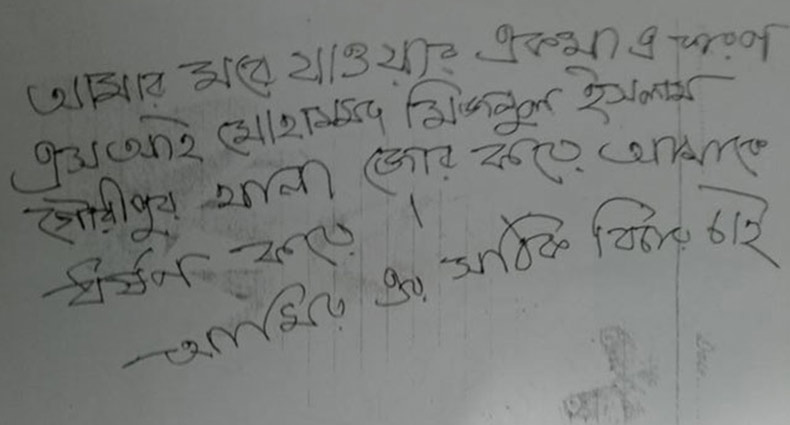 আমার মরে যাওয়ার একমাএ কারণ
এসআই মোহাম্মদ মিজানুল ইসলাম
গৌরীপুর থানা জোর করে আমাকে
ধর্ষণ করে।
আমি এর সঠিক বিচার চাই